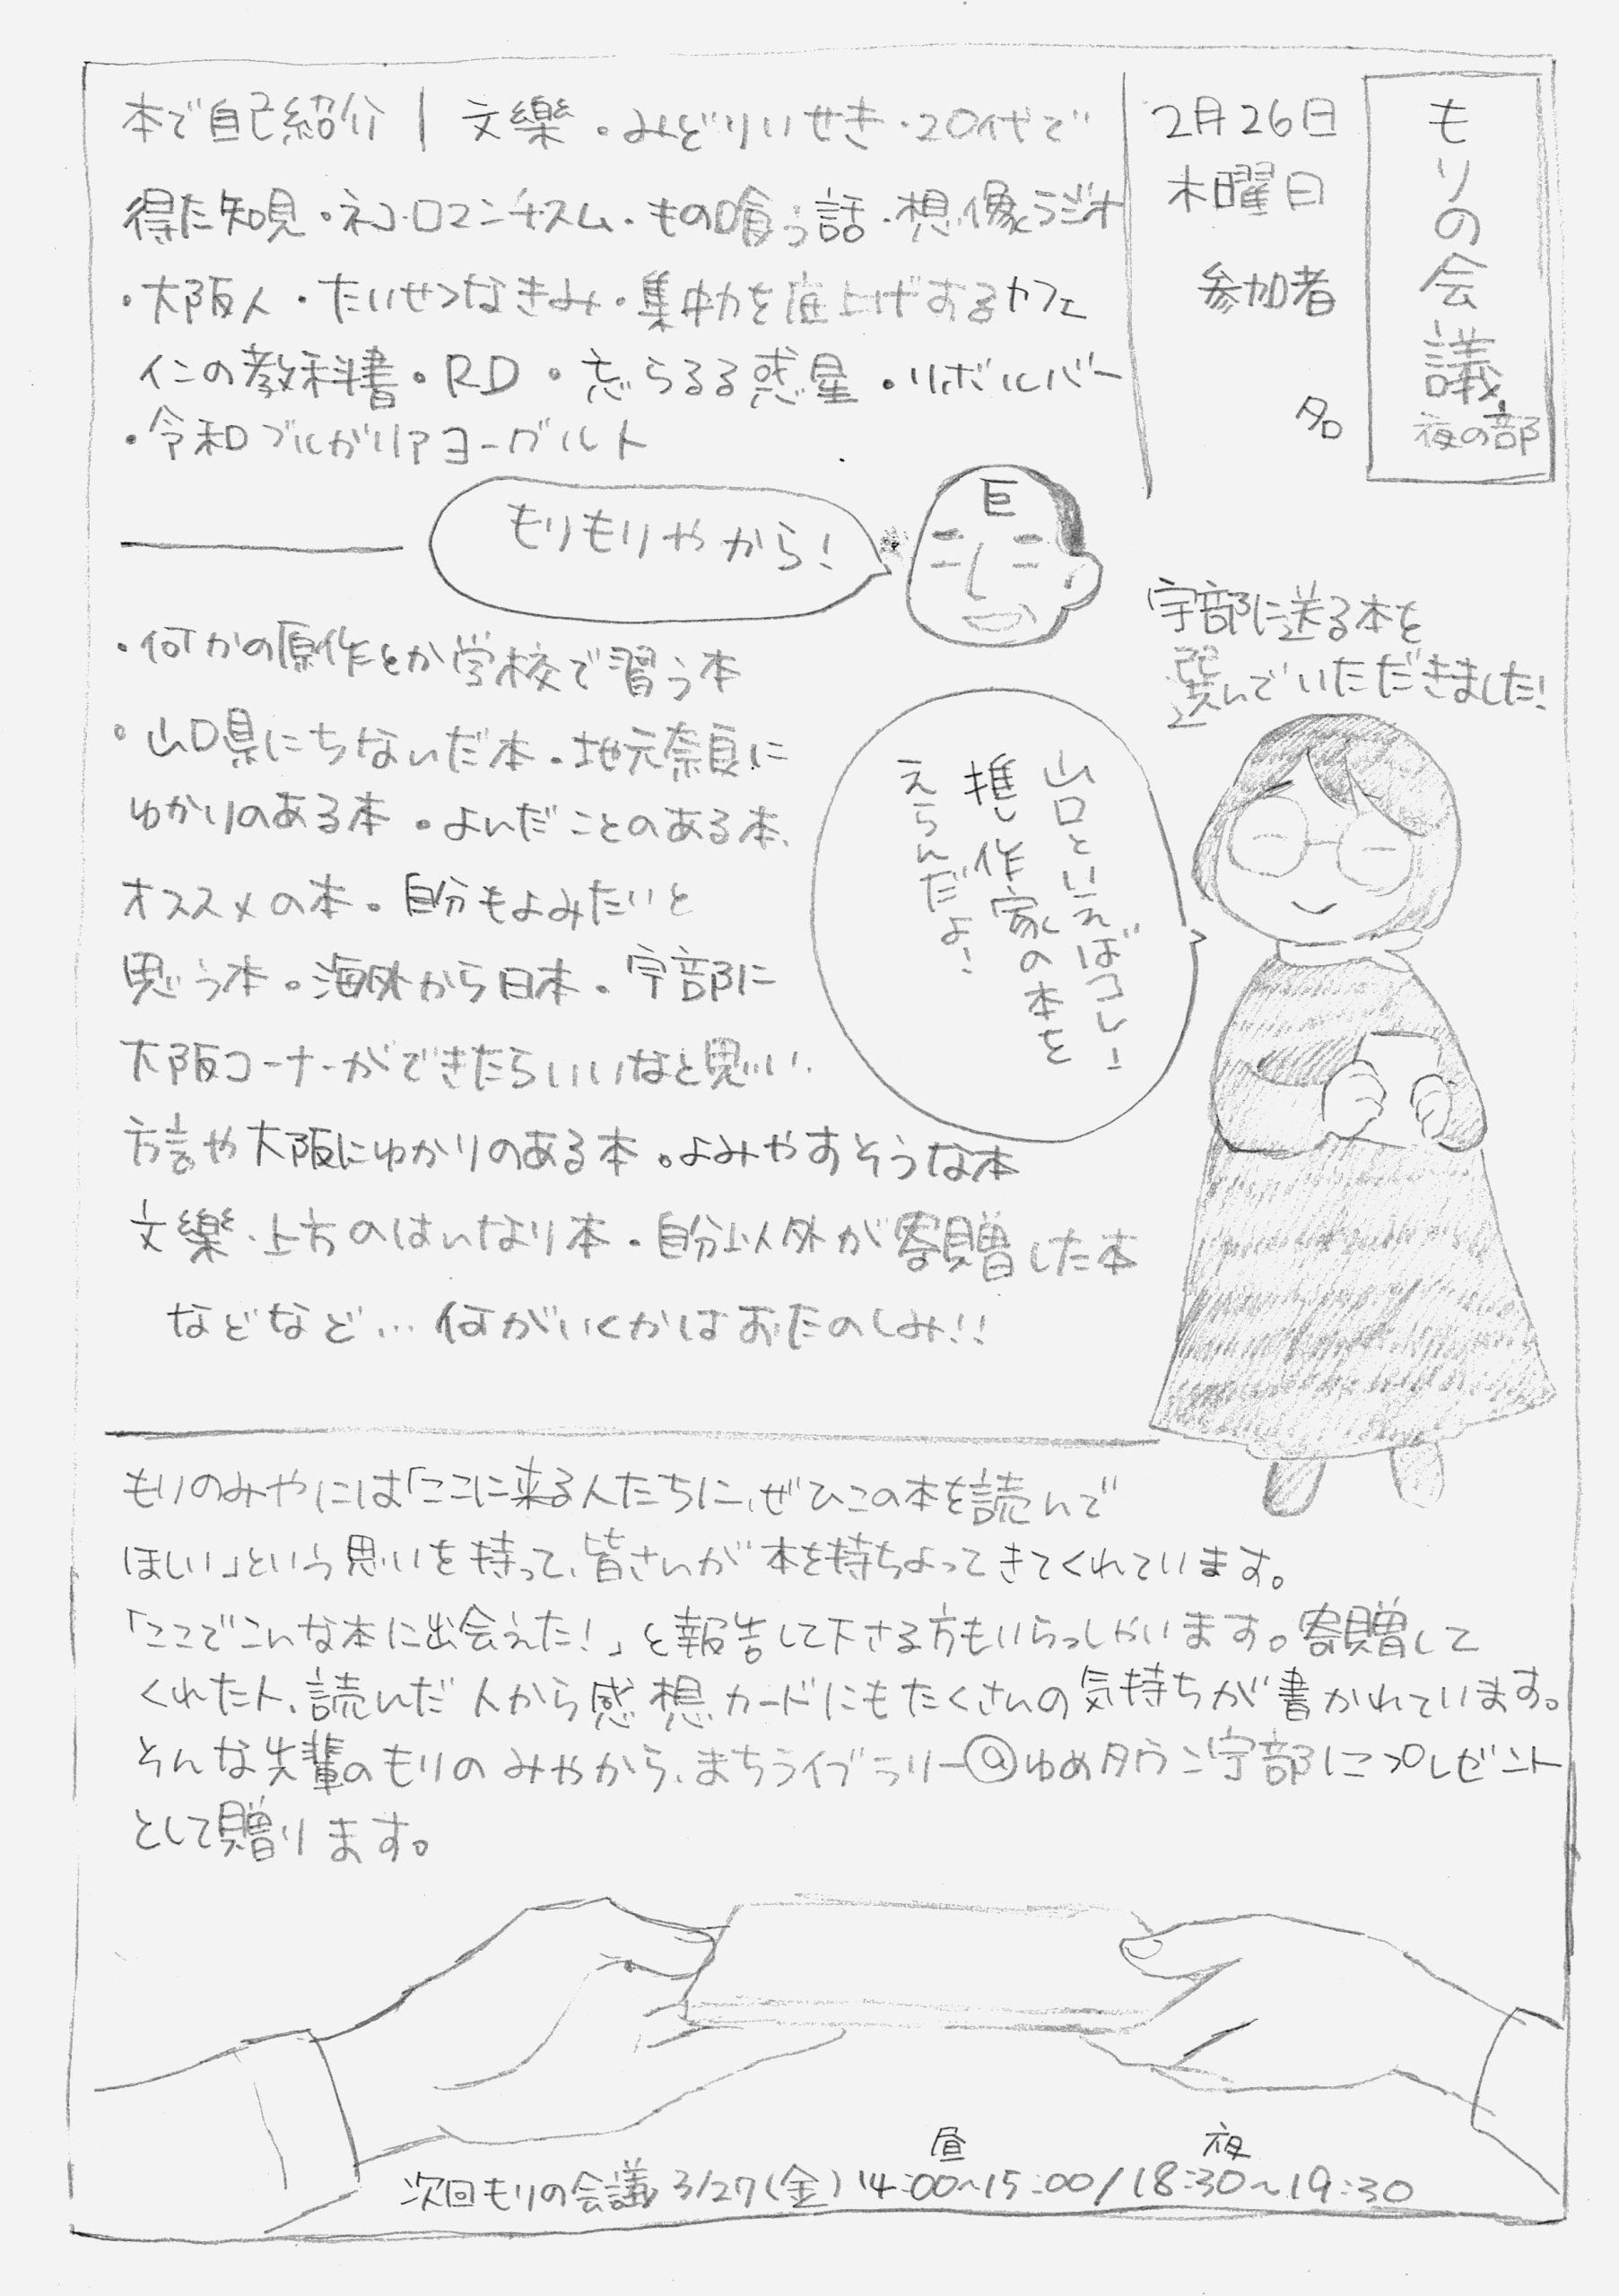 もりの会議
夜の部
2月26日
木曜日
参加者
名
本で自己紹介 | 文樂・みどりいせき・20代で
得た知見・ネコ・ロマンチスム・もの喰う話・想像ラジオ
・大阪人・たいせつなきみ・集中力を底上げするカフェ
インの教科書・RD・忘らるる惑星・リボルバー
・令和ブルガリアヨーグルト
もりもりやから!
巨
宇部に送る本を
選んでいただきました!
・何かの原作とか学校で習う本
・山口県にちなんだ本・地元奈良に
ゆかりのある本・よんだことのある本、
オススメの本・自分もよみたいと
思う本・海外から日本・宇部に
大阪コーナーができたらいいなと思い、
方言や大阪にゆかりのある本・よみやすそうな本
文樂・上方のはんなり本・自分以外が寄贈した本
などなど…何がいくかはおたのしみ!!
山口といえばコレ!
推し作家の本を
えらんだよ!
もりのみやには「ここに来る人たちに、ぜひこの本を読んで
ほしい」という思いを持って、皆さんが本を持ちよってきてくれています。
「ここでこんな本に出会えた!」と報告して下さる方もいらっしゃいます。寄贈して
くれた人、読んだ人から感想カードにもたくさんの気持ちが書かれています。
そんな先輩のもりのみやから、まちライブラリー@ゆめタウン宇部にプレゼント
として贈ります。
昼 夜
次回もりの会議 3/27(金) 14:00~15:00/18:30~19:30